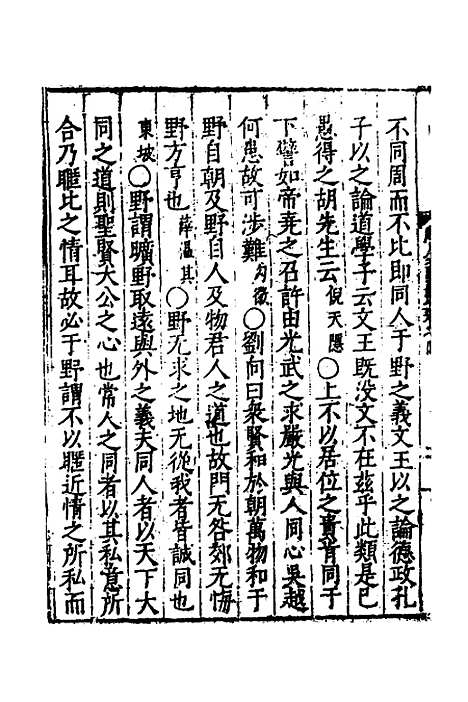 不同周而不比即同人于野之義文王以之論德政孔
子以之論道學子云文王既没文不在茲乎此類是已
愚得之胡先生云 倪天隱 ○上不以居位之貴肯同于
下譬如帝堯之召許由光武之求嚴光與人同心吳越
何患故可涉難 內徵 ○劉向曰衆賢和於朝萬物和于
野自朝及野自人及物君人之道也故門无咎郊无悔
野方亨也 薛溫其 ○野无求之地无從我者皆誠同也
東坡 ○野謂曠野取遠與外之義夫同人者以天下大
同之道則聖賢大公之心也常人之同者以其私意所
合乃暱比之情耳故必于野謂不以暱近情之所私而